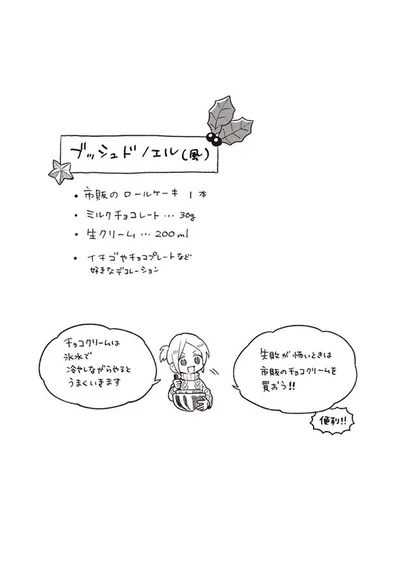 ブッシュドノエル(風)
・市販のロールケーキ 1本
・ミルクチョコレート…30g
・生クリーム…200ml
・イチゴやチョコプレートなど
好きなデコレーション
チョコクリームは
氷水で
冷やしながらやると
うまくいきます
失敗が怖いときは
市販のチョコクリームを
買おう!!
便利!!